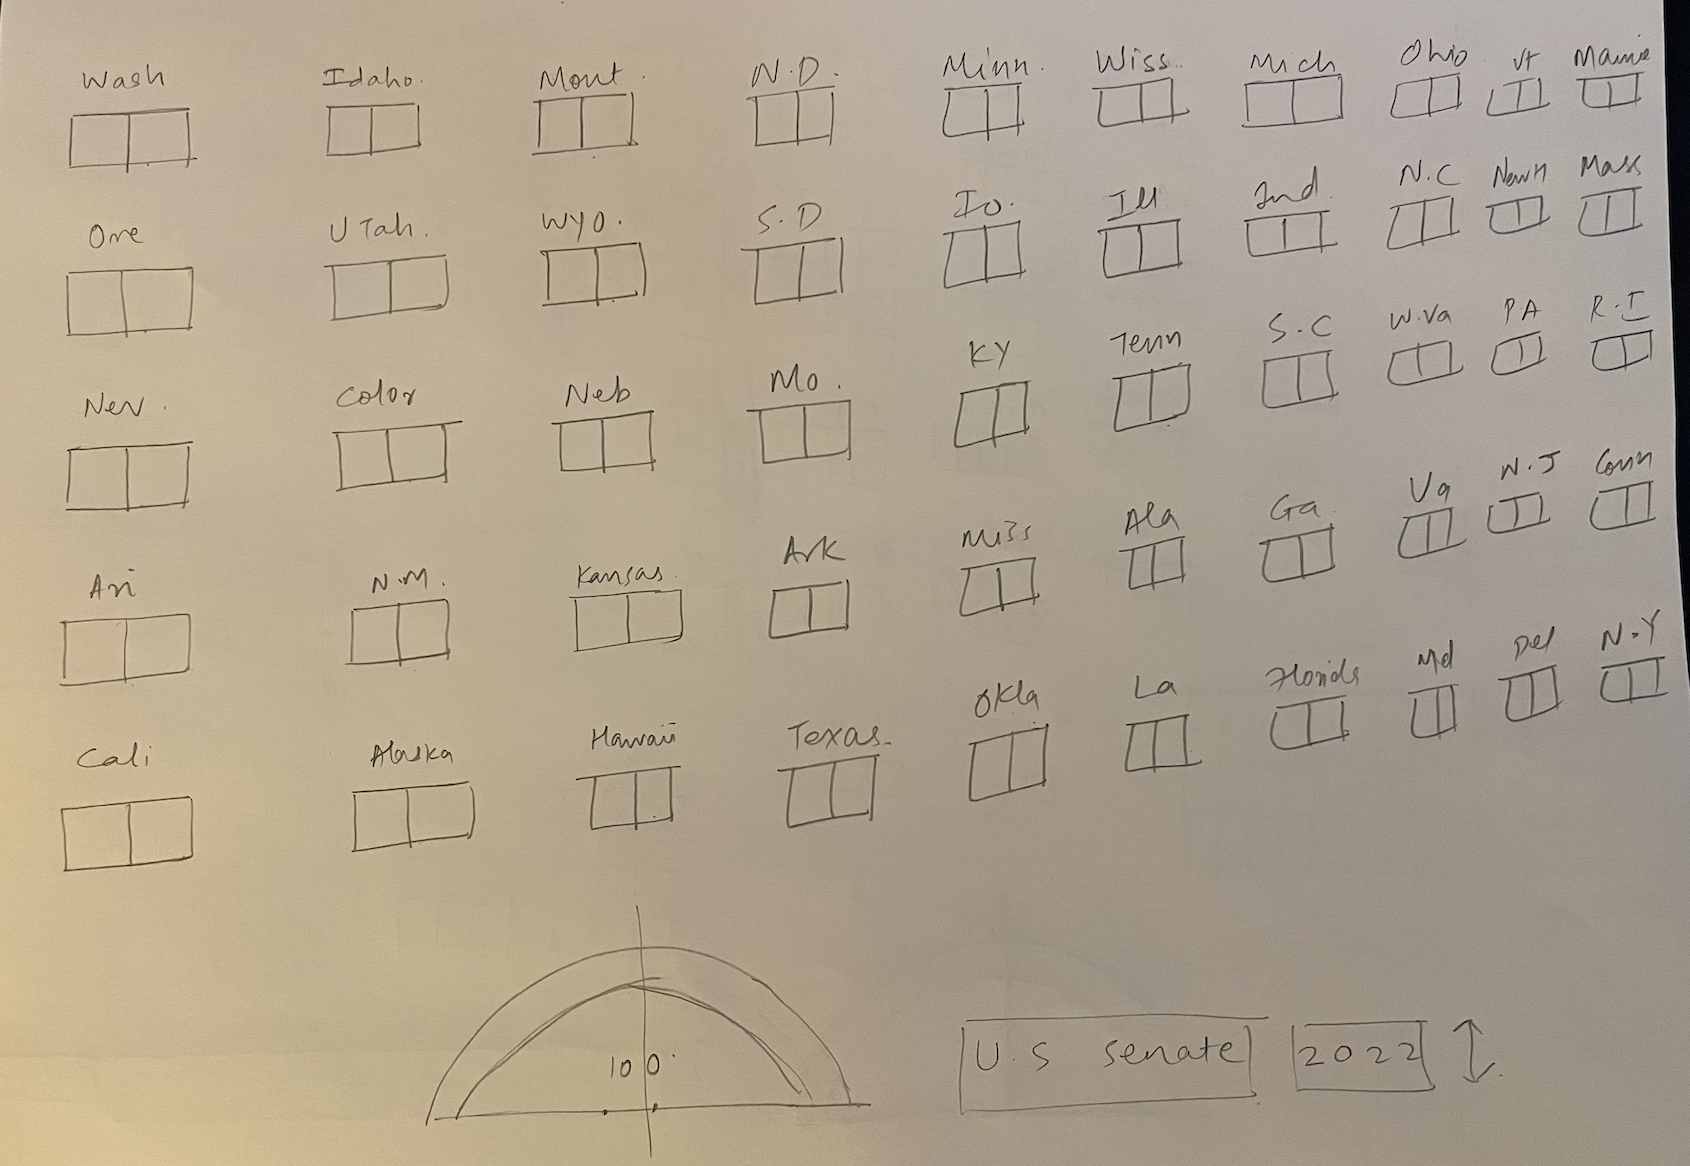 Wash Idaho. Mont. N.D. Minn. Wiss. Mich Ohio Vt Maine
Ore Utah. Wyo. S.D Io. Ill Ind. N.C NewH Mass
Nev. Color Neb Mo. KY Tenn S.C W.Va PA R.I
Ari N.M. Kansas. Ark Miss Ala Ga Va N.J Conn
Cali Alaska Hawaii Texas. Okla La Florida Md Del N.Y
100
U.S senate 2022